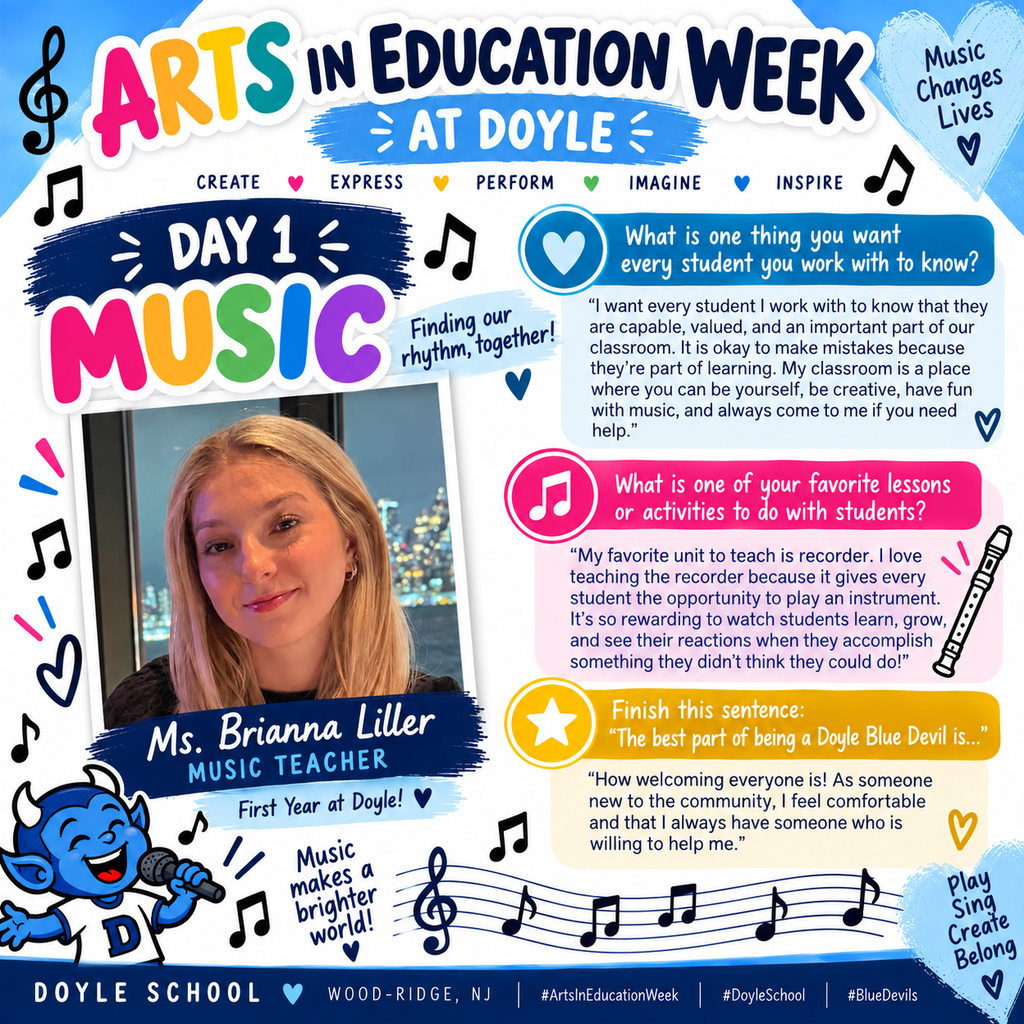 ARTS IN EDUCATION WEEK
AT DOYLE
Music
Changes
Lives
CREATE EXPRESS PERFORM IMAGINE INSPIRE
DAY 1
MUSIC
Finding our
rhythm, together!
What is one thing you want
every student you work with to know?
“I want every student I work with to know that they
are capable, valued, and an important part of our
classroom. It is okay to make mistakes because
they’re part of learning. My classroom is a place
where you can be yourself, be creative, have fun
with music, and always come to me if you need
help.”
What is one of your favorite lessons
or activities to do with students?
“My favorite unit to teach is recorder. I love
teaching the recorder because it gives every
student the opportunity to play an instrument.
It’s so rewarding to watch students learn, grow,
and see their reactions when they accomplish
something they didn’t think they could do!”
Ms. Brianna Liller
MUSIC TEACHER
First Year at Doyle!
Finish this sentence:
“The best part of being a Doyle Blue Devil is...”
“How welcoming everyone is! As someone
new to the community, I feel comfortable
and that I always have someone who is
willing to help me.”
D
Music
makes a
brighter
world!
Play
Sing
Create
Belong
DOYLE SCHOOL WOOD-RIDGE, NJ | #ArtsInEducationWeek | #DoyleSchool | #BlueDevils